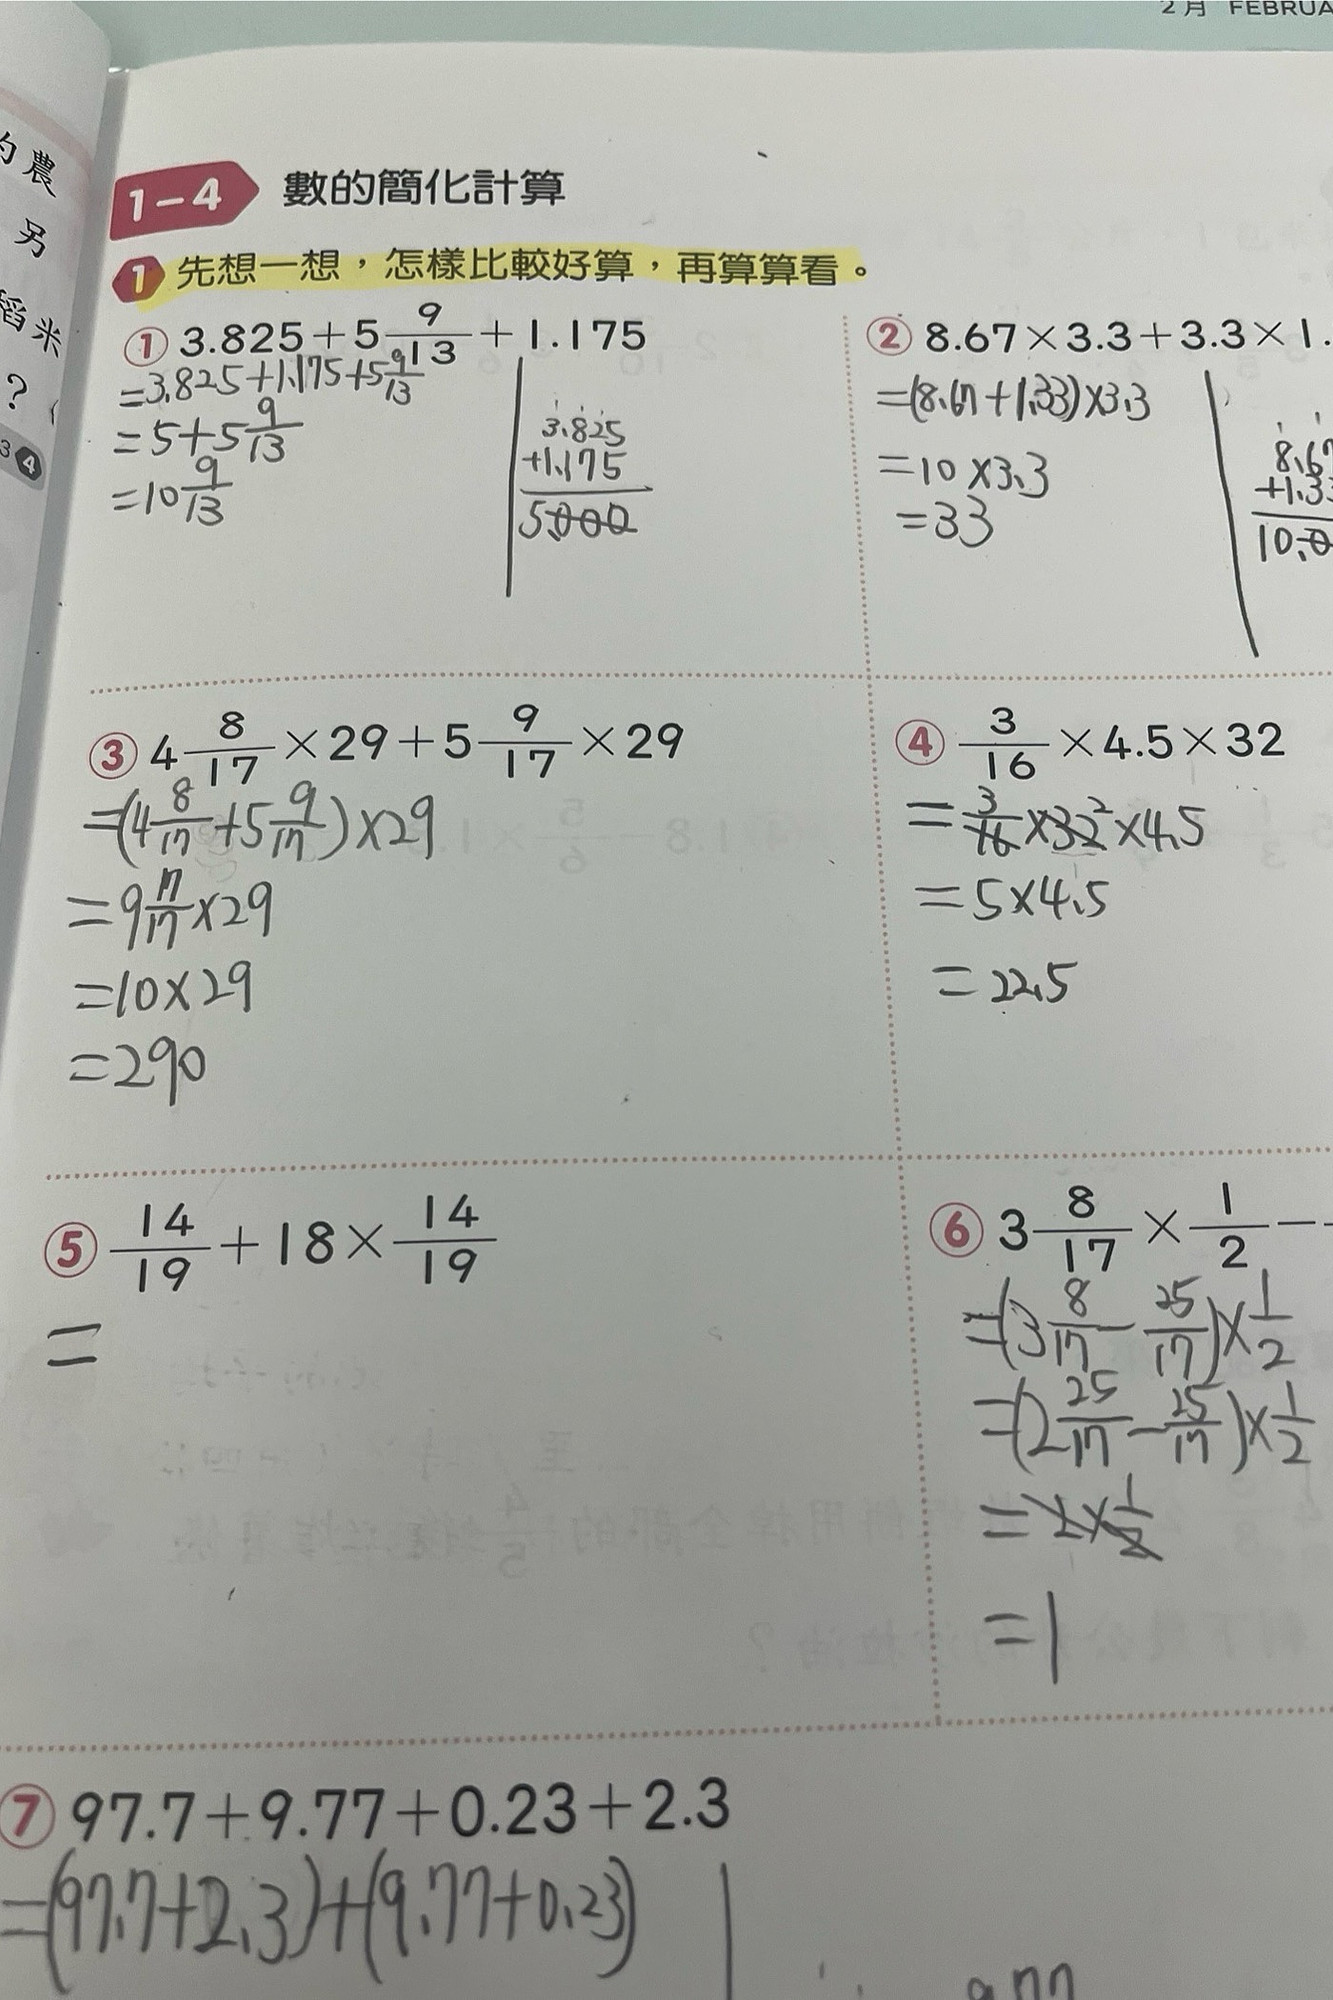 2月 FEBRUA
的農
另
稻米
?
3 4
1-4 數的簡化計算
1 先想一想,怎樣比較好算,再算算看。
① 3.825+5 9/13+1.175
=3.825+1.175+5 9/13
=5+5 9/13
=10 9/13
3.825
+1.175
5.000
② 8.67×3.3+3.3×1.
=(8.67+1.33)×3.3
=10×3.3
=33
8.67
+1.33
10.0
③ 4 8/17×29+5 9/17×29
=(4 8/17+5 9/17)×29
=9 17/17×29
=10×29
=290
④ 3/16×4.5×32
=3/16×32 2×4.5
=5×4.5
=22.5
⑤ 14/19+18×14/19
=
⑥ 3 8/17×1/2-
=(3 8/17-25/17)×1/2
=(2 25/17-25/17)×1/2
=2×1/2
=1
⑦ 97.7+9.77+0.23+2.3
=(97.7+2.3)+(9.77+0.23)